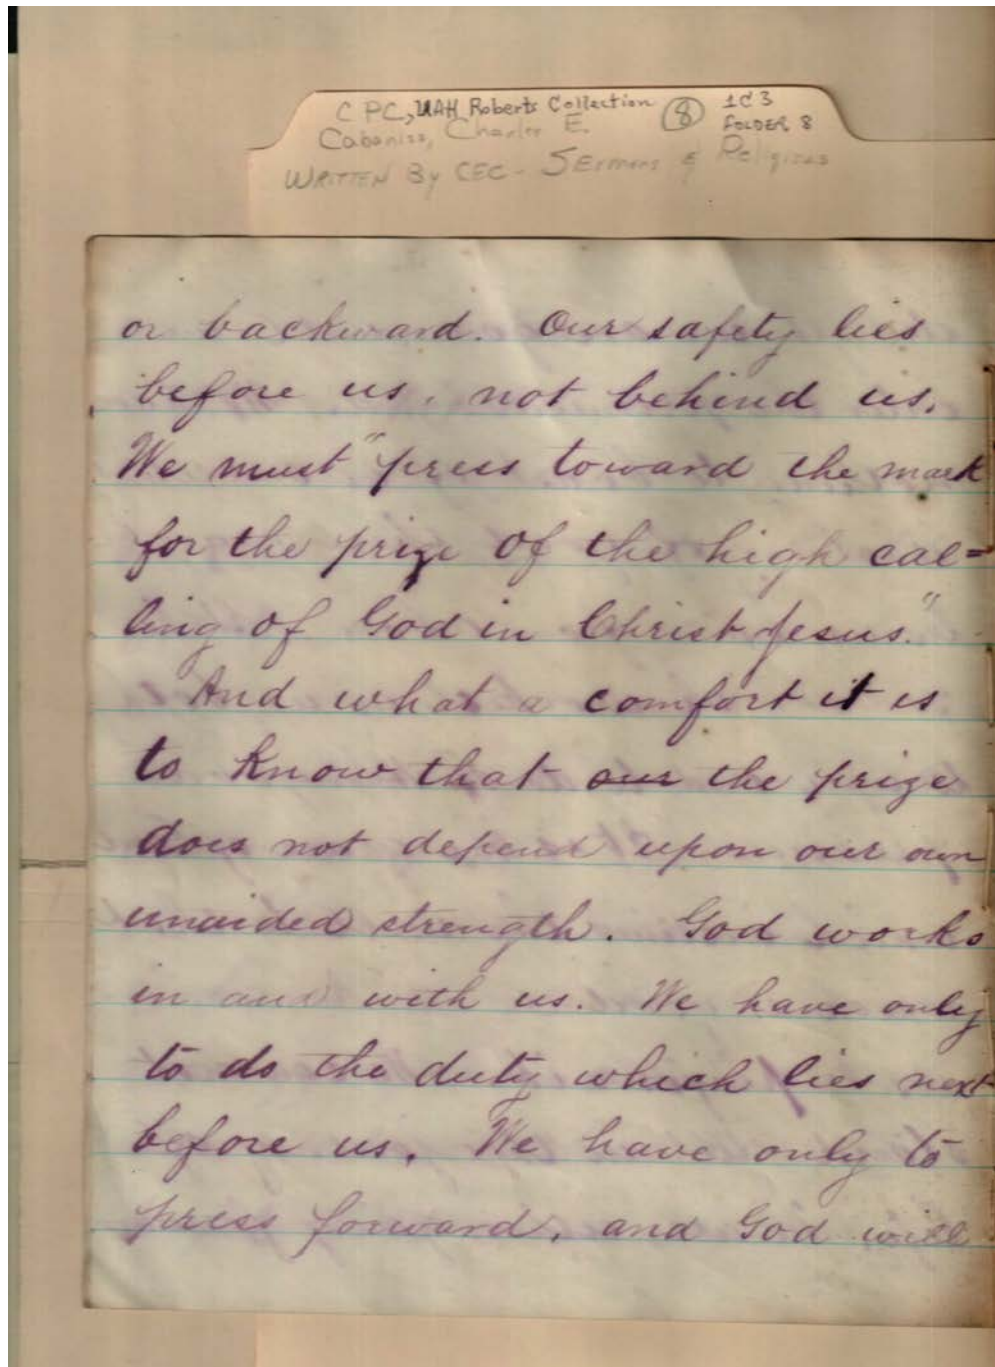 C PC, UAH Roberts Collection (8) 1C3
Cabaniss, Charles E. FOLDER 8
WRITTEN By CEC - SErmons & Religious
or backward. Our safety lies
before us, not behind us.
We must "press toward the mark
for the prize of the high cal=
ling of God in Christ Jesus."
And what a comfort it is
to know that our the prize
does not depend upon our own
unaided strength. God works
in and with us. We have only
to do the duty which lies next
before us. We have only to
press forward, and God will